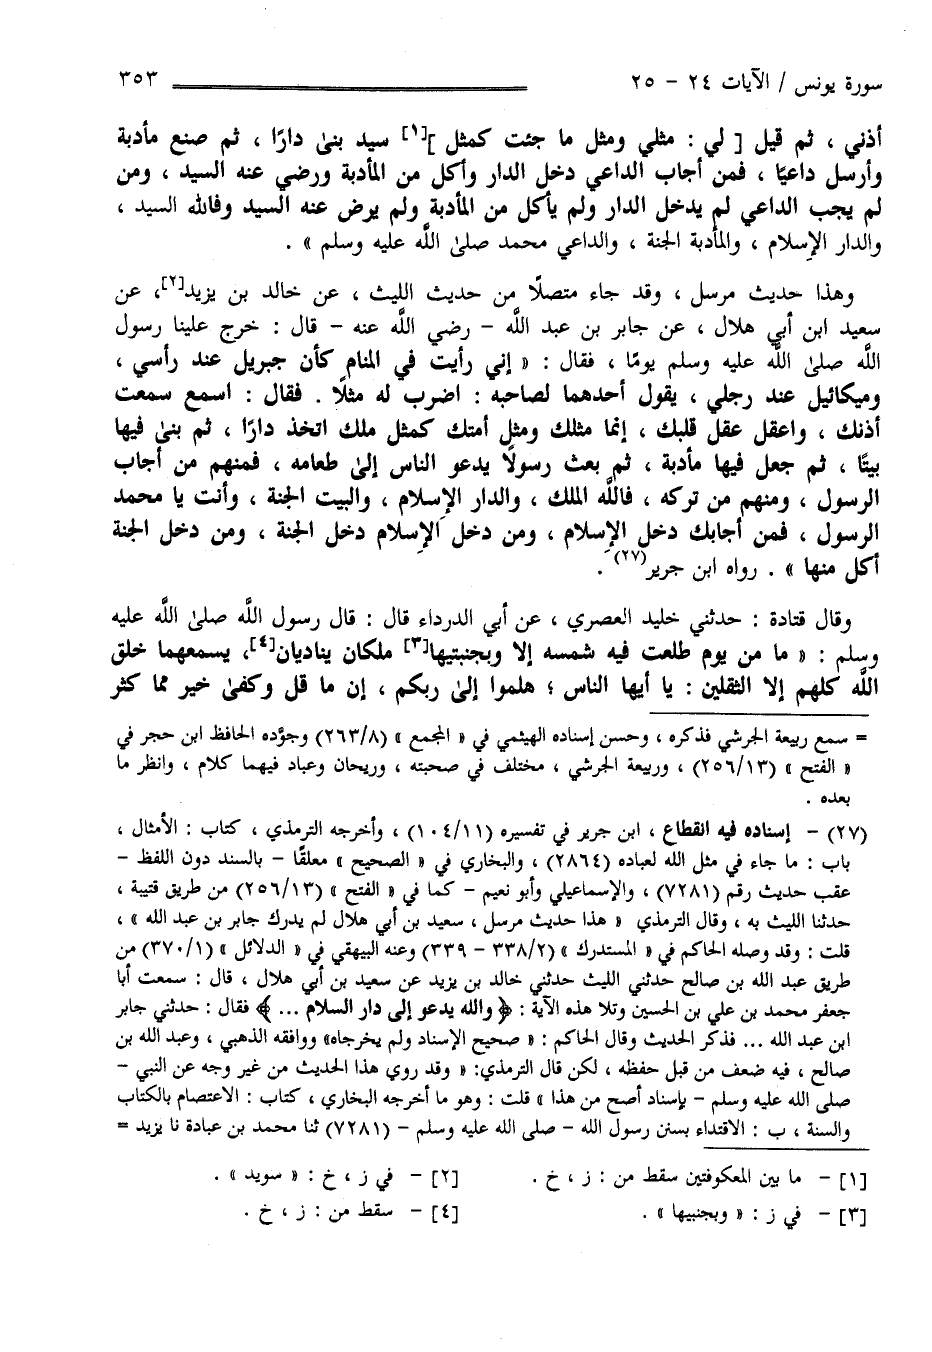 سورة يونس / الآيات ٢٤ - ٢٥ ٣٥٣
أذني ، ثم قيل [ لي : مثلي ومثل ما جئت كمثل ][١] سيد بنىٰ دارًا ، ثم صنع مأدبة
وأرسل داعيًا ، فمن أجاب الداعي دخل الدار وأكل من المأدبة ورضي عنه السيد ، ومن
لم يجب الداعي لم يدخل الدار ولم يأكل من المأدبة ولم يرض عنه السيد وفالله السيد ،
والدار الإسلام ، والمأدبة الجنة ، والداعي محمد صلىٰ اللَّه عليه وسلم » .
وهذا حديث مرسل ، وقد جاء متصلًا من حديث الليث ، عن خالد بن يزيد[٢]، عن
سعيد ابن أبي هلال ، عن جابر بن عبد اللَّه - رضي اللَّه عنه - قال : خرج علينا رسول
اللَّه صلىٰ اللَّه عليه وسلم يومًا ، فقال : « إني رأيت في المنام كأن جبريل عند رأسي ،
وميكائيل عند رجلي ، يقول أحدهما لصاحبه : اضرب له مثلًا . فقال : اسمع سمعت
أذنك ، واعقل عقل قلبك ، إنما مثلك ومثل أمتك كمثل ملك اتخذ دارًا ، ثم بنىٰ فيها
بيتًا ، ثم جعل فيها مأدبة ، ثم بعث رسولًا يدعو الناس إلىٰ طعامه ، فمنهم من أجاب
الرسول ، ومنهم من تركه ، فاللَّه الملك ، والدار الإسلام ، والبيت الجنة ، وأنت يا محمد
الرسول ، فمن أجابك دخل الإسلام ، ومن دخل الإسلام دخل الجنة ، ومن دخل الجنة
أكل منها » . رواه ابن جرير(٢٧).
وقال قتادة : حدثني خليد العصري ، عن أبي الدرداء قال : قال رسول اللَّه صلىٰ اللَّه عليه
وسلم : « ما من يوم طلعت فيه شمسه إلا وبجنبتيها[٣] ملكان يناديان[٤]، يسمعهما خلق
اللَّه كلهم إلا الثقلين : يا أيها الناس ؛ هلموا إلىٰ ربكم ، إن ما قل وكفىٰ خير مما كثر
= سمع ربيعة الجرشي فذكره ، وحسن إسناده الهيثمي في « المجمع » (٢٦٣/٨) وجوَّده الحافظ ابن حجر في
« الفتح » (٢٥٦/١٣) ، وربيعة الجرشي ، مختلف في صحبته ، وريحان وعباد فيهما كلام ، وانظر ما
بعده .
(٢٧) - إسناده فيه انقطاع ، ابن جرير في تفسيره (١٠٤/١١) ، وأخرجه الترمذي ، كتاب : الأمثال ،
باب : ما جاء في مثل الله لعباده (٢٨٦٤) ، والبخاري في « الصحيح » معلقًا - بالسند دون اللفظ -
عقب حديث رقم (٧٢٨١) ، والإسماعيلي وأبو نعيم - كما في « الفتح » (٢٥٦/١٣) من طريق قتيبة ،
حدثنا الليث به ، وقال الترمذي « هذا حديث مرسل ، سعيد بن أبي هلال لم يدرك جابر بن عبد الله » ،
قلت : وقد وصله الحاكم في « المستدرك » (٣٣٨/٢ - ٣٣٩) وعنه البيهقي في « الدلائل » (٣٧٠/١) من
طريق عبد الله بن صالح حدثني الليث حدثني خالد بن يزيد عن سعيد بن أبي هلال ، قال : سمعت أبا
جعفر محمد بن علي بن الحسين وتلا هذه الآية : ﴿ والله يدعو إلى دار السلام ... ﴾ فقال : حدثني جابر
ابن عبد الله ... فذكر الحديث وقال الحاكم : « صحيح الإسناد ولم يخرجاه» ووافقه الذهبي ، وعبد الله بن
صالح ، فيه ضعف من قبل حفظه ، لكن قال الترمذي: « وقد روي هذا الحديث من غير وجه عن النبي -
صلى الله عليه وسلم - بإسناد أصح من هذا » قلت : وهو ما أخرجه البخاري ، كتاب : الاعتصام بالكتاب
والسنة ، ب : الاقتداء بسنن رسول الله - صلى الله عليه وسلم - (٧٢٨١) ثنا محمد بن عبادة نا يزيد =
[١] - ما بين المعكوفتين سقط من : ز ، خ . [٢] - في ز ، خ : « سويد » .
[٣] - في ز : « وبجنبيها » . [٤] - سقط من : ز ، خ .